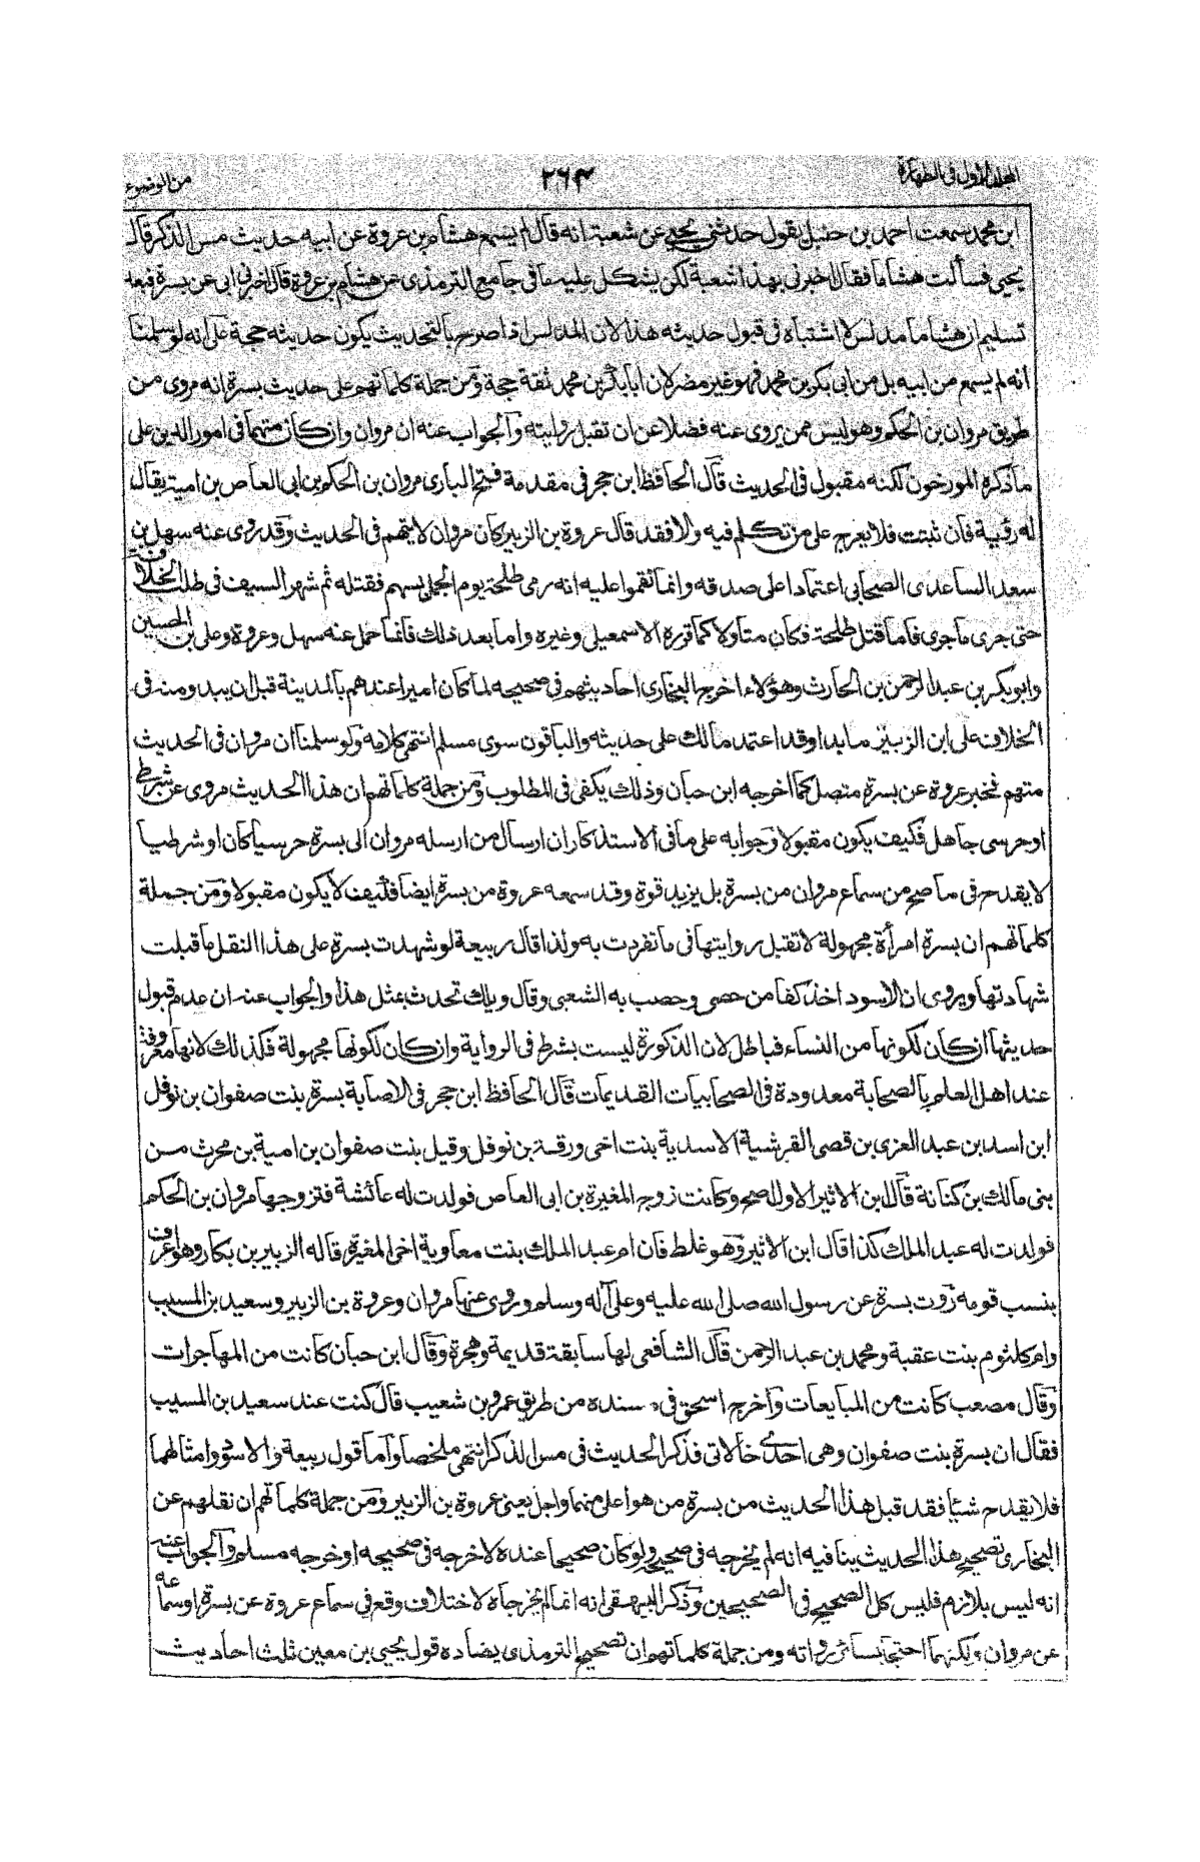 المجلد الاول فى الطهارة
٢٦٣
من الوضوء
ابن محمد سمعت احمد بن حنبل يقول حدثنى يحيى عن شعبة انه قال لم يسمع هشام بن عروة عن ابيه حديث مس الذكر قال
يحيى فسألت هشاما فقال اخبرنى بهذا شعبة لكن يشكل عليه ما فى جامع الترمذى عن هشام بن عروة قال اخبرنى ابى عن بسرة فبعد
تسليم ان هشاما مدلس لا اشتباه فى قبول حديثه هذا لان المدلس اذا صرح بالتحديث يكون حديثه حجة على انه لو سلمنا
انه لم يسمع من ابيه بل من ابى بكر بن محمد فهو غير مضر لان ابا بكر بن محمد ثقة حجة ومن جملة كلماتهم على حديث بسرة انه مروى من
طريق مروان بن الحكم وهو ليس ممن يروى عنه فضلا عن ان تقبل روايته والجواب عنه ان مروان وان كان متهما فى امور الدين على
ما ذكره المورخون لكنه مقبول فى الحديث قال الحافظ ابن حجر فى مقدمة فتح البارى مروان بن الحكم بن ابى العاص بن امية يقال
له رؤية فان ثبتت فلا يعرج على من تكلم فيه والا فقد قال عروة بن الزبير كان مروان لا يتهم فى الحديث وقد روى عنه سهل بن
سعد الساعدى الصحابى اعتمادا على صدقه وانما نقموا عليه انه رمى طلحة يوم الجمل بسهم فقتله ثم شهر السيف فى طلب الخلافة
حتى جرى ما جرى فاما قتل طلحة فكان متأولا كما قرره الاسمعيلى وغيره واما بعد ذلك فانما حمل عنه سهل وعروة وعلى بن الحسين
وابو بكر بن عبد الرحمن بن الحارث وهؤلاء اخرج البخارى احاديثهم فى صحيحه لما كان اميرا عندهم بالمدينة قبل ان يبدو منه فى
الخلاف على ابن الزبير ما بدا وقد اعتمد مالك على حديثه والباقون سوى مسلم انتهى كلامه ولو سلمنا ان مروان فى الحديث
متهم فخبر عروة عن بسرة متصل كما اخرجه ابن حبان وذلك يكفى فى المطلوب ومن جملة كلماتهم ان هذا الحديث مروى عن شرطى
او حرسى جاهل فكيف يكون مقبولا وجوابه على ما فى الاستذكار ان ارسال من ارسله مروان الى بسرة حرسيا كان او شرطيا
لا يقدح فى ما صح من سماع مروان من بسرة بل يزيد قوة وقد سمعه عروة من بسرة ايضا فكيف لا يكون مقبولا ومن جملة
كلماتهم ان بسرة امرأة مجهولة لا تقبل روايتها فى ما تفردت به ولذا قال ربيعة لو شهدت بسرة على هذا النقل ما قبلت
شهادتها ويروى ان الاسود اخذ كفا من حصى وحصب به الشعبى وقال ويلك تحدث بمثل هذا والجواب عنه ان عدم قبول
حديثها ان كان لكونها من النساء فباطل لان الذكورة ليست بشرط فى الرواية وان كان لكونها مجهولة فكذلك لانها معروفة
عند اهل العلم بالصحابة معدودة فى الصحابيات القديمات قال الحافظ ابن حجر فى الاصابة بسرة بنت صفوان بن نوفل
ابن اسد بن عبد العزى بن قصى القرشية الاسدية بنت اخى ورقة بن نوفل وقيل بنت صفوان بن امية بن محرث من
بنى مالك بن كنانة قال ابن الاثير الاول اصح وكانت زوج المغيرة بن ابى العاص فولدت له عائشة فتزوجها مروان بن الحكم
فولدت له عبد الملك كذا قال ابن الاثير وهو غلط فان ام عبد الملك بنت معاوية اخى المغيرة قاله الزبير بن بكار وهو اعرف
بنسب قومه روت بسرة عن رسول الله صلى الله عليه وعلى آله وسلم وروى عنها مروان وعروة بن الزبير وسعيد بن المسيب
وام كلثوم بنت عقبة ومحمد بن عبد الرحمن قال الشافعى لها سابقة قديمة وهجرة وقال ابن حبان كانت من المهاجرات
وقال مصعب كانت من المبايعات واخرج اسحق فى مسنده من طريق عمرو بن شعيب قال كنت عند سعيد بن المسيب
فقال ان بسرة بنت صفوان وهى احدى خالاتى فذكر الحديث فى مس الذكر انتهى ملخصا واما قول ربيعة والاسود وامثالهما
فلا يقدح شيئا فقد قبل هذا الحديث من بسرة من هو اعلى منهما واجل يعنى عروة بن الزبير ومن جملة كلماتهم ان نقلهم عن
البخارى تصحيح هذا الحديث ينافيه انه لم يخرجه فى صحيحه ولو كان صحيحا عنده لاخرجه فى صحيحه او خرجه مسلم والجواب عنه
انه ليس بلازم فليس كل الصحيح فى الصحيحين وذكر البيهقى انه انما لم يخرجاه لاختلاف وقع فى سماع عروة عن بسرة او سماعه
عن مروان ولكنهما احتجا بسائر رواته ومن جملة كلماتهم ان تصحيح الترمذى يضاده قول يحيى بن معين ثلث احاديث